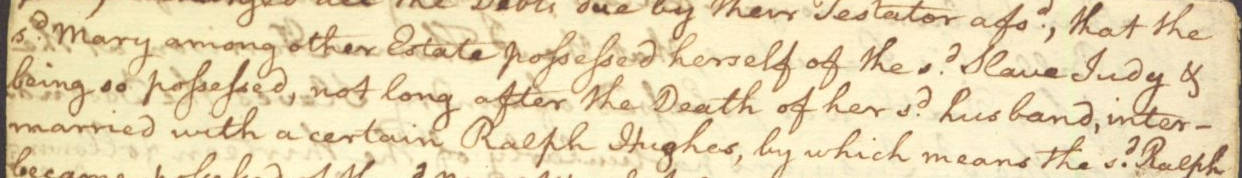 all the Debts due by their Testator afsd., that the
sd. Mary among other Estate possessed herself of the sd. Slave Judy &
being so possessed, not long after the Death of her sd. husband, inter-
married with a certain Ralph Hughes, by which means the sd. Ralph
became possessed of the